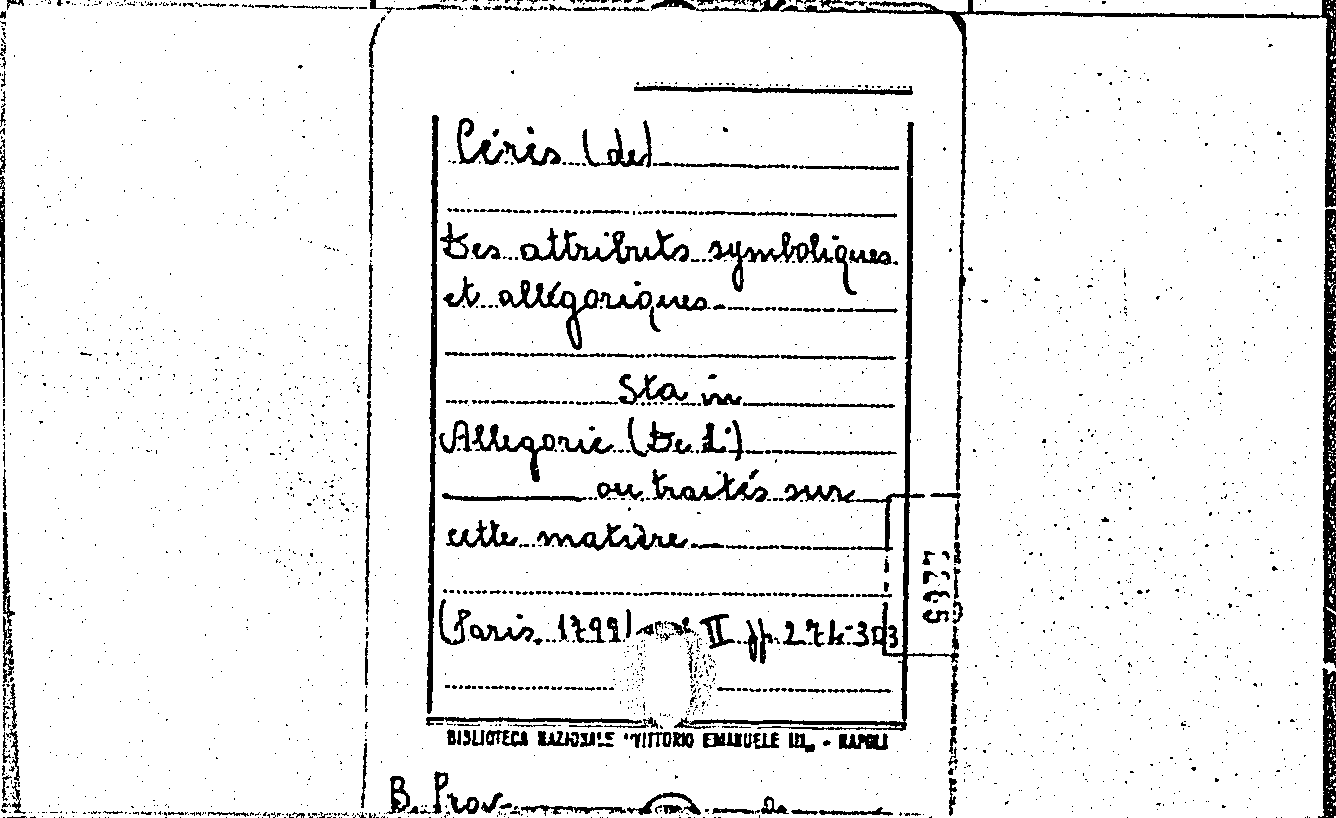 Céris (de)
Des attributs symboliques
et allégoriques
Sta in
Allegorie (De L')
ou traités sur
cette matière
(Paris. 1799) II pp. 274-303
BIBLIOTECA NAZIONALE "VITTORIO EMANUELE III„ - NAPOLI
B. Prov.